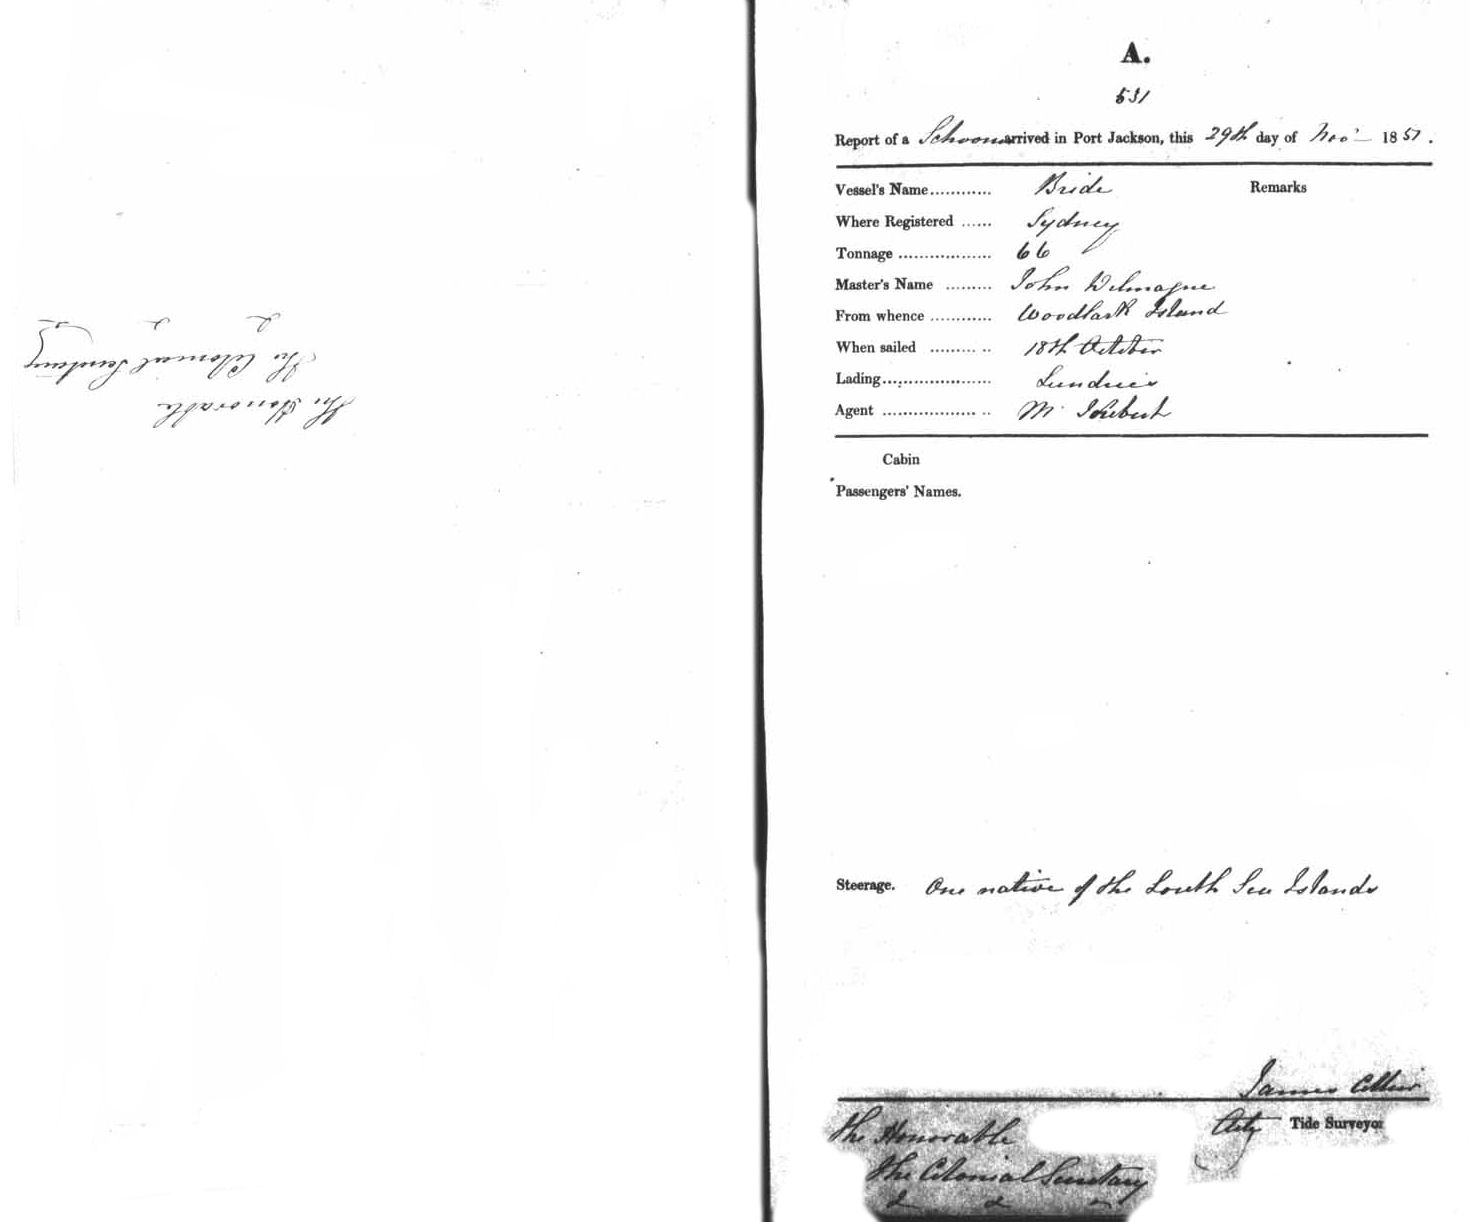 The Honorable
The Colonial Secretary
&c &c &c
A.
531
Report of a Schooner arrived in Port Jackson, this 29th day of Nov' 1851.
Vessel's Name............ Bride Remarks
Where Registered ...... Sydney
Tonnage .................. 66
Master's Name ......... John
From whence ............ Woodlark Island
When sailed ......... .. 18th October
Lading...................... Sundries
Agent .................. .. Mr Joubert
Cabin
Passengers' Names.
Steerage. One native of the South Sea Islands
James
Actg Tide Surveyor
The Honorable
The Colonial Secretary
&c &c &c